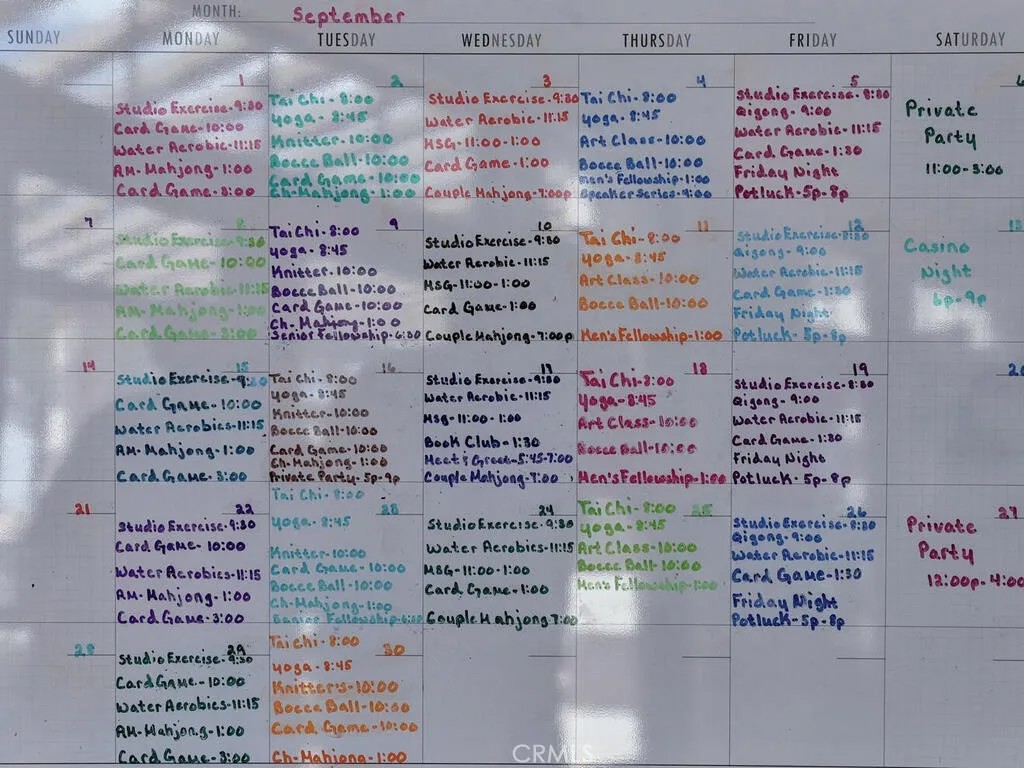 MONTH: September
SUNDAY MONDAY TUESDAY WEDNESDAY THURSDAY FRIDAY SATURDAY
1
Studio Exercise-9:30
Card Game-10:00
Water Aerobic-11:15
AM-Mahjong-1:00
Card Game-3:00
2
Tai Chi-8:00
yoga-8:45
Knitter-10:00
Bocce Ball-10:00
Card Game-10:00
Ch-Mahjong-1:00
3
Studio Exercise-9:30
Water Aerobic-11:15
MSG-11:00-1:00
Card Game-1:00
Couple Mahjong-7:00p
4
Tai Chi-8:00
yoga-8:45
Art Class-10:00
Bocce Ball-10:00
Men's Fellowship-1:00
Speaker Series-9:00
5
Studio Exercise-8:30
Qigong-9:00
Water Aerobic-11:15
Card Game-1:30
Friday Night
Potluck-5p-8p
6
Private
Party
11:00-3:00
7
8
Studio Exercise-9:30
Card Game-10:00
Water Aerobic-11:15
AM-Mahjong-1:00
Card Game-3:00
9
Tai Chi-8:00
yoga-8:45
Knitter-10:00
Bocce Ball-10:00
Card Game-10:00
Ch-Mahjong-1:00
Senior Fellowship-6:30
10
Studio Exercise-9:30
Water Aerobic-11:15
MSG-11:00-1:00
Card Game-1:00
Couple Mahjong-7:00p
11
Tai Chi-8:00
yoga-8:45
Art Class-10:00
Bocce Ball-10:00
Men's Fellowship-1:00
12
Studio Exercise-8:30
Qigong-9:00
Water Aerobic-11:15
Card Game-1:30
Friday Night
Potluck-5p-8p
13
Casino
Night
6p-9p
14
15
Studio Exercise-9:30
Card Game-10:00
Water Aerobics-11:15
AM-Mahjong-1:00
Card Game-3:00
16
Tai Chi-8:00
yoga-8:45
Knitter-10:00
Bocce Ball-10:00
Card Game-10:00
Ch-Mahjong-1:00
Private Party-5p-9p
17
Studio Exercise-9:30
Water Aerobic-11:15
Msg-11:00-1:00
Book Club-1:30
Meet & Greet-5:45-7:00
Couple Mahjong-7:00
18
Tai Chi-8:00
yoga-8:45
Art Class-10:00
Bocce Ball-10:00
Men's Fellowship-1:00
19
Studio Exercise-8:30
Qigong-9:00
Water Aerobic-11:15
Card Game-1:30
Friday Night
Potluck-5p-8p
20
21
22
Studio Exercise-9:30
Card Game-10:00
Water Aerobics-11:15
AM-Mahjong-1:00
Card Game-3:00
23
Tai Chi-8:00
yoga-8:45
Knitter-10:00
Card Game-10:00
Bocce Ball-10:00
Ch-Mahjong-1:00
Senior Fellowship-6:30
24
Studio Exercise-9:30
Water Aerobics-11:15
MSG-11:00-1:00
Card Game-1:00
Couple Mahjong 7:00
25
Tai Chi-8:00
yoga-8:45
Art Class-10:00
Bocce Ball-10:00
Men's Fellowship-1:00
26
Studio Exercise-8:30
Qigong-9:00
Water Aerobic-11:15
Card Game-1:30
Friday Night
Potluck-5p-8p
27
Private
Party
12:00p-4:00
28
29
Studio Exercise-9:30
Card Game-10:00
Water Aerobics-11:15
AM-Mahjong-1:00
Card Game-3:00
30
Tai Chi-8:00
yoga-8:45
Knitter's-10:00
Bocce Ball-10:00
Card Game-10:00
Ch-Mahjong-1:00
CRMLS